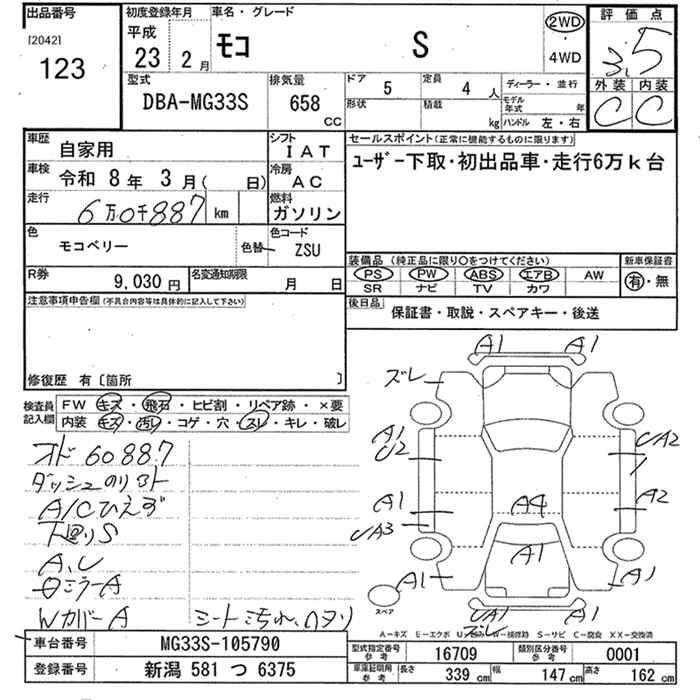 出品番号
[2042]
123
初度登録年月
平成
23 2月
車名・グレード
モコ S
2WD
4WD
評価点
3.5
外装 内装
C C
型式
DBA-MG33S
排気量
658 CC
ドア 5
形状
定員 4 人
積載 kg
ディーラー・並行
モデル年式 年
ハンドル 左・右
車歴 自家用
シフト IAT
車検 令和 8年 3月( 日)
冷房 AC
走行 6万0千887 km
燃料 ガソリン
色 モコベリー
色替
色コード ZSU
R券 9,030円
名変通知期限 月 日
セールスポイント(正常に機能するものに限ります)
ユーザー下取・初出品車・走行6万k台
装備品(純正品に限り○をつけてください)
新車保証書
PS PW ABS エアB AW
SR ナビ TV カワ
有・無
後日品 保証書・取説・スペアキー・後送
注意事項申告欄(不具合内容等は具体的に記入して下さい)
修復歴 有〔箇所 〕
検査員記入欄
FW キズ・飛石・ヒビ割・リペア跡・×要
内装 キズ・汚レ・コゲ・穴・スレ・キレ・破レ
オド 60887
ダッシュのリアト
A/Cひえず
下廻りS
A、U
ミラーA
WカバーA
シート汚れ、ヘタリ
A1 A1
ズレ
A1
U2
UA2
A1
A2
UA3
A4
A1
A1
A1
UA1
ズレ
スペア
A-キズ E-エクボ U-凹み W-補修跡 S-サビ C-腐食 XX-交換済
車台番号 MG33S-105790
登録番号 新潟 581 つ 6375
型式指定番号 参考 16709
類別区分番号 参考 0001
車庫証明用 参考 長さ 339 cm 幅 147 cm 高さ 162 cm